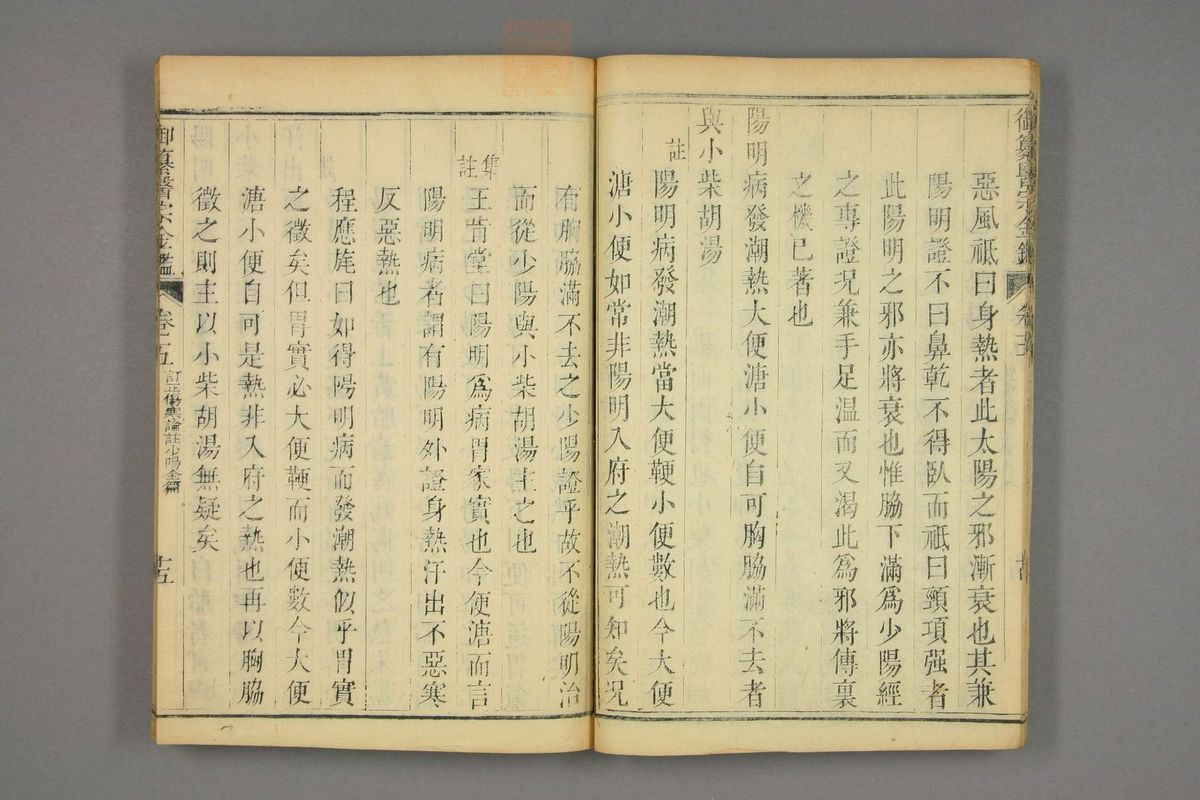 惡風祗曰身熱者此太陽之邪漸衰也其兼
陽明證不曰鼻乾不得臥而祗曰頸項强者
此陽明之邪亦將衰也惟脇下滿爲少陽經
之專證况兼手足温而又渴此爲邪將傳裏
之機已著也
陽明病發潮熱大便溏小便自可胸脇滿不去者
與小柴胡湯
註
陽明病發潮熱當大便鞕小便數也今大便
溏小便如常非陽明入府之潮熱可知矣况
有胸脇滿不去之少陽證乎故不從陽明治
而從少陽與小柴胡湯主之也
集註
王肯堂曰陽明爲病胃家實也今便溏而言
陽明病者謂有陽明外證身熱汗出不惡寒
反惡熱也
程應旄曰如得陽明病而發潮熱似乎胃實
之徵矣但胃實必大便鞕而小便數今大便
溏小便自可是熱非入府之熱也再以胸脇
徵之則主以小柴胡湯無疑矣
御纂醫宗金鑑
卷五
訂正傷寒論註少陽全篇
十五